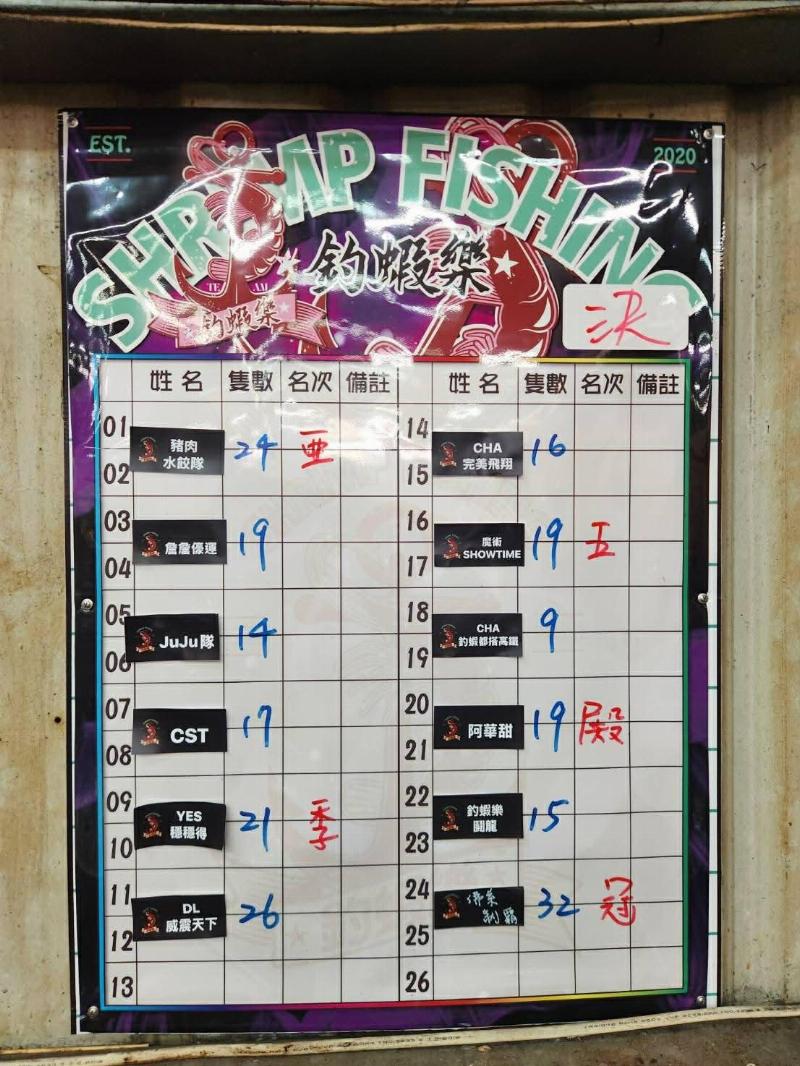 EST.
2020
SHRIMP FISHING
釣蝦樂
TEAM
釣蝦樂
決
姓名 隻數 名次 備註 姓名 隻數 名次 備註
01
02
豬肉
水餃隊
24 亜
03
04
詹詹優運
19
05
06
JuJu隊
14
07
08
CST
17
09
10
YES
穩穩得
21 季
11
12
DL
威震天下
26
13
14
15
CHA
完美飛翔
16
16
17
魔術
SHOWTIME
19 五
18
19
CHA
釣蝦都搭高鐵
9
20
21
阿華甜
19 殿
22
23
釣蝦樂
鬪龍
15
24
25
32 冠
26